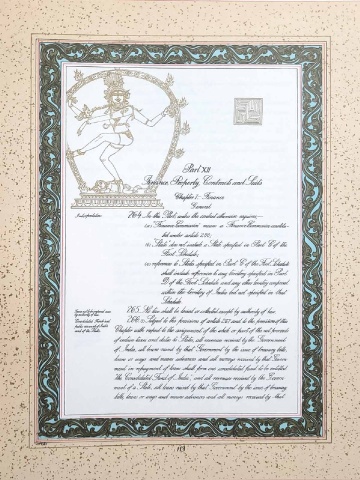 Part XII
Finance, Property, Contracts and Suits
Chapter I.- Finance
General
Interpretation
264. In this Part, unless the context otherwise requires,—
(a) "Finance Commission" means a Finance Commission constitu-
ted under article 280;
(b) "State" does not include a State specified in Part C of the
First Schedule;
(c) reference to States specified in Part C of the First Schedule
shall include references to any territory specified in Part
D of the First Schedule and any other territory comprised
within the territory of India but not specified in that
Schedule.
265. No tax shall be levied or collected except by authority of law.
266. (1) Subject to the provisions of article 267 and to the provisions of this
Chapter with respect to the assignment of the whole or part of the net proceeds
of certain taxes and duties to States, all revenues received by the Government
of India, all loans raised by that Government by the issue of treasury bills,
loans or ways and means advances and all moneys received by that Govern-
ment in repayment of loans shall form one consolidated fund to be entitled
"the Consolidated Fund of India", and all revenues received by the Govern-
ment of a State, all loans raised by that Government by the issue of treasury
bills, loans or ways and means advances and all moneys received by that